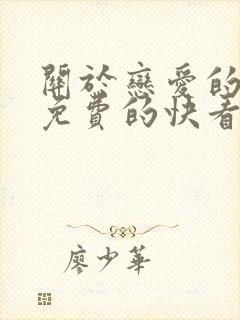 關於戀愛的
免費的快看
廖少華